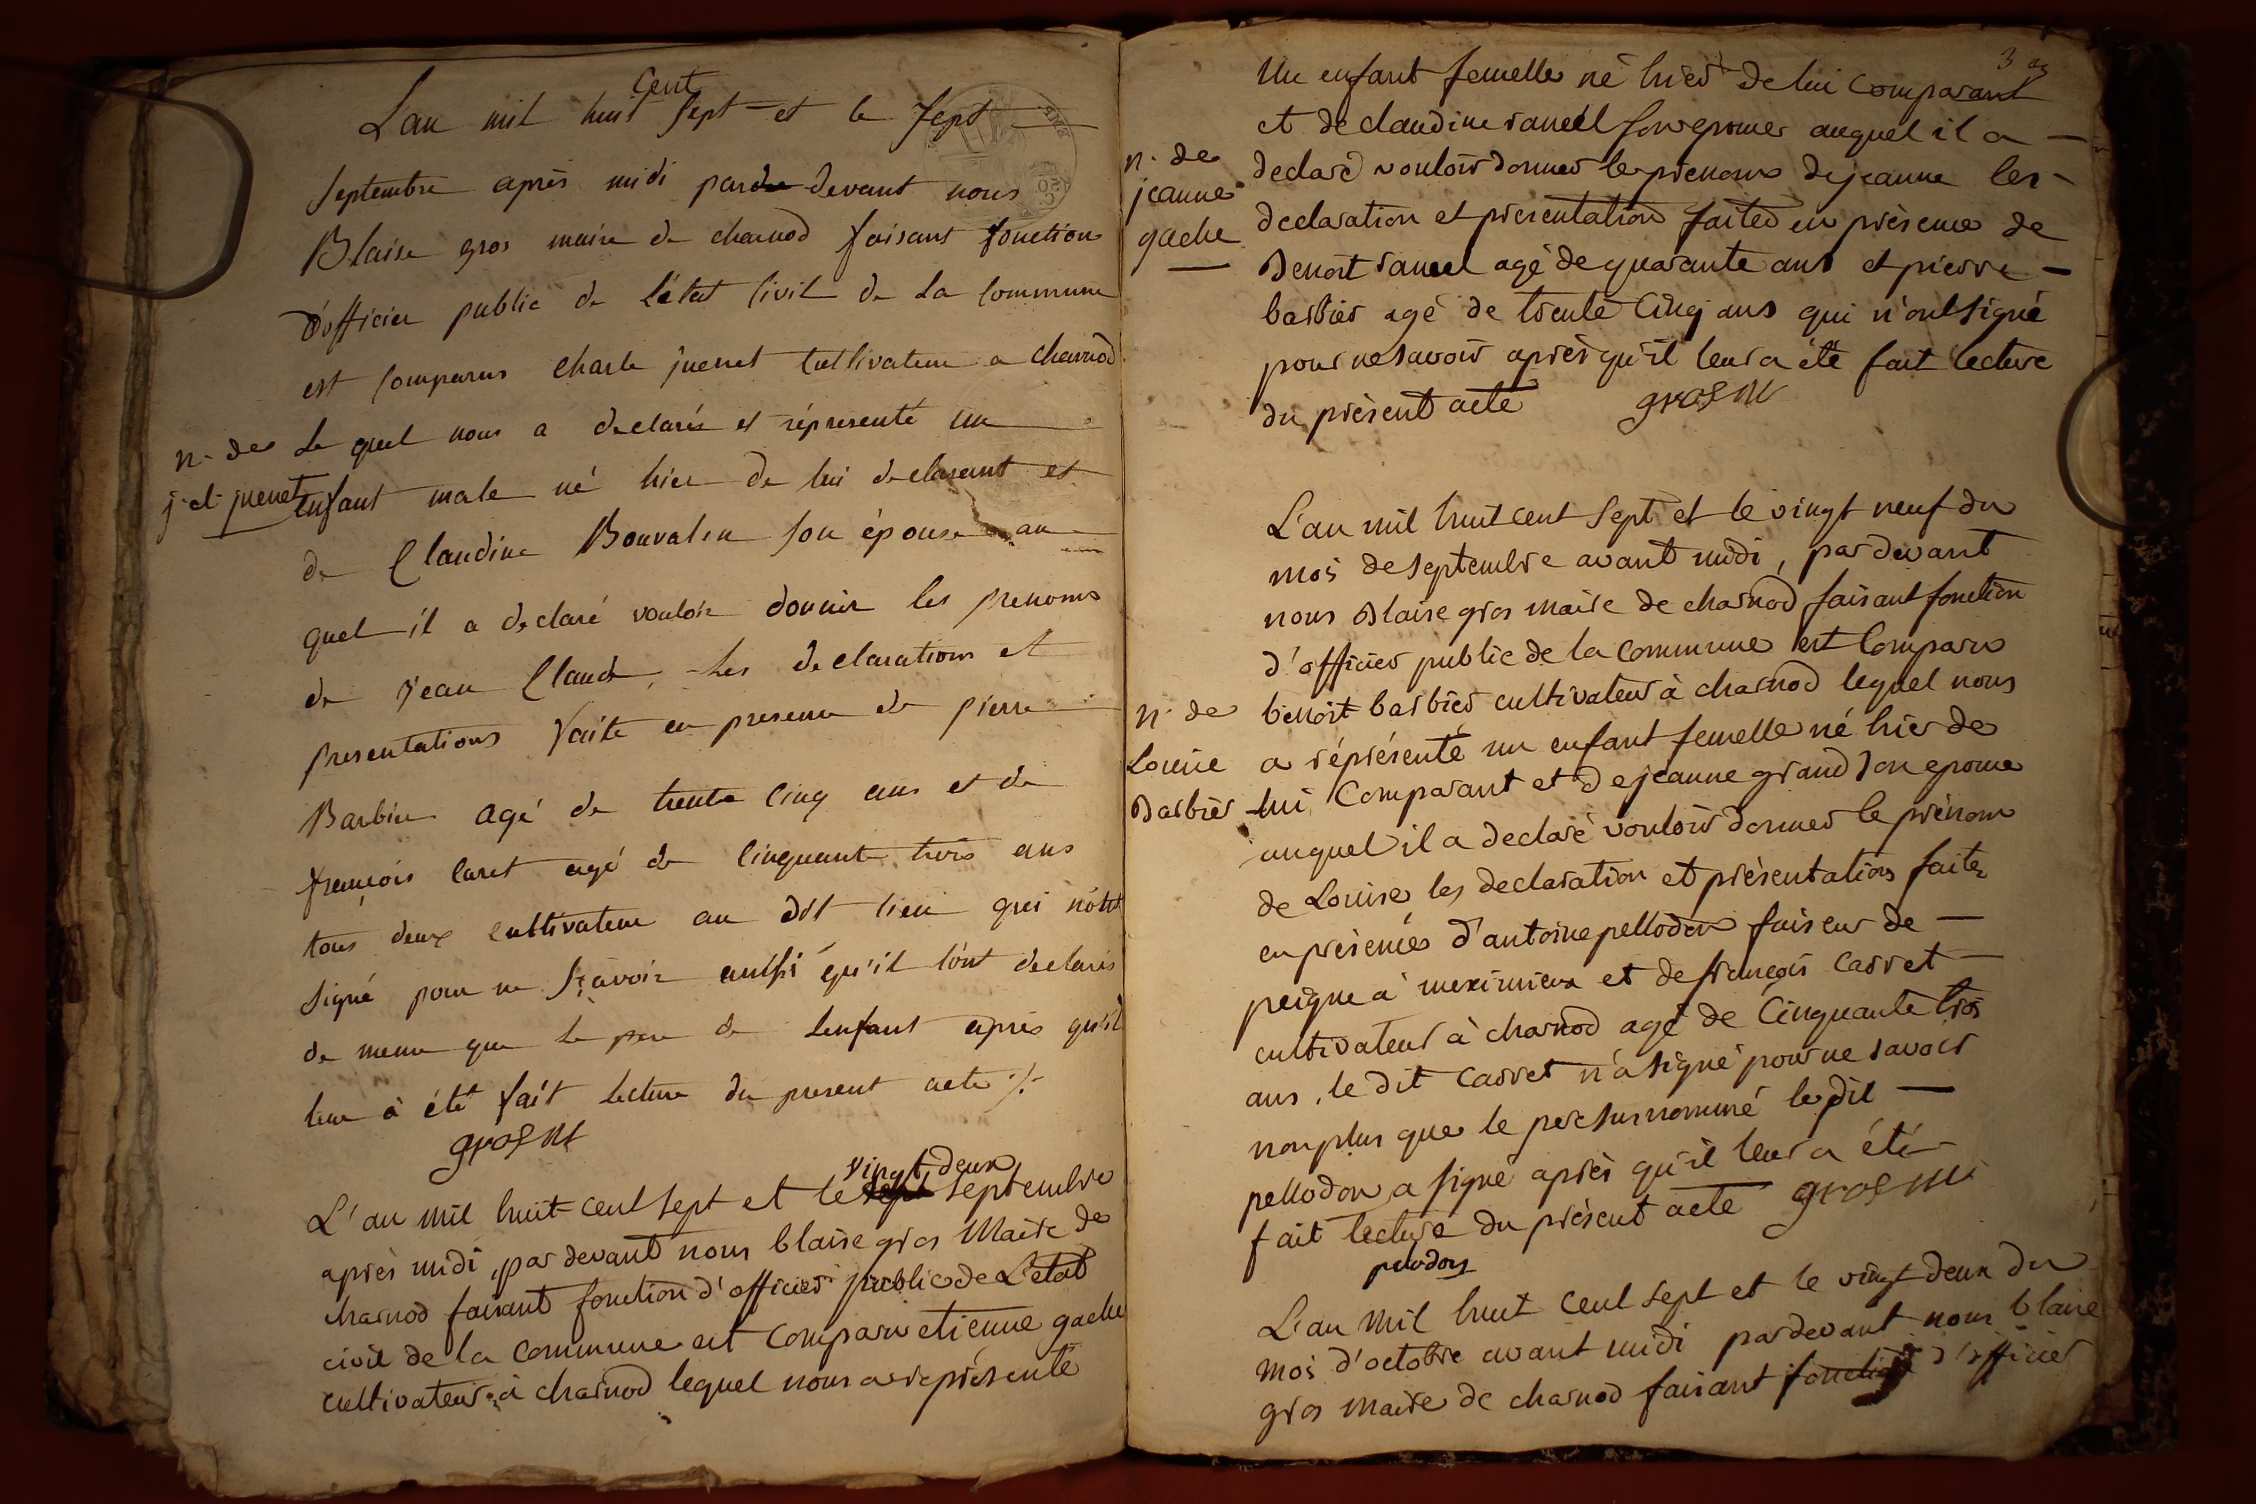 cent
L'an mil huit sept et le sept
septembre après midi par devant nous
Blaise gros maire de charnod faisant fonction
d'officier public de l'état civil de la commune
est comparus charle juenet cultivateur a charnod
n. de
le quel nous a declarés et réprésenté un
j. cl. juenet
enfant male né hier de lui declarant et
de Claudine Bouvalen son épouse au
quel il a declaré vouloir donner les prenoms
de jean Claude, les declarations et
presentations faite en presence de pierre
Barbier agé de trente cinq ans et de
françois caret agé de cinquante trois ans
tous deux cultivateur au dit lieu qui n'ont
signé pour ne sçavoir aussi qu'il l'ont declarés
de meme que le pere de l'enfant après qu'il
leur à été fait lecture du present acte ./.
gros M
vingt deux
L'an mil huit cent sept et le sept septembre
après midi, par devant nous blaise gros Maire de
charnod faisant fonction d'officier public de L'etat
civil de la commune est comparu etienne gache
cultivateur à charnod lequel nous a représenté
3
un enfant femelle né hier de lui comparant
et de claudine son epouse auquel il a
n. de
jeanne
gache
declaré vouloir donner le prenoms de jeanne les
declaration et presentation faited en présence de
Benoit agé de quarante ans et pierre
barbier agé de trente cinq ans qui n'ont signé
pour ne savoir après qu'il leur a été fait lecture
du présent acte gros M
L'an mil huit cent sept et le vingt neuf du
mois de septembre avant midi, par devant
nous Blaise gros maire de charnod faisant fonction
d'officier public de la commune est comparu
n. de
Louise
Barbier
benoit barbier cultivateur à charnod lequel nous
a réprésenté un enfant femelle né hier de
lui comparant et de jeanne grand son epouse
auquel il a declaré vouloir donner le prénom
de Louise les declaration et présentations faites
en présence d'antoine pellodon faiseur de
peigne à meximieux et de françois carret
cultivateur à charnod agé de cinquante trois
ans, le dit carret n'a signé pour ne savoir
non plus que le pere surnommé le dit
pellodon a signé après qu'il leur a été
fait lecture du présent acte gros M
pelodon
L'an mil huit cent sept et le vingt deux du
mois d'octobre avant midi par devant nous blaise
gros maire de charnod faisant fonction d'officier